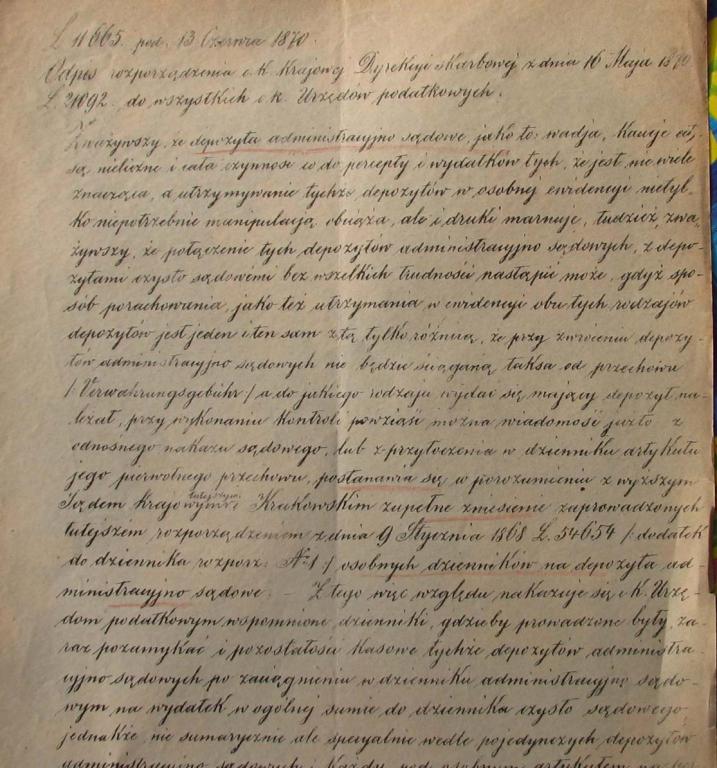 L 11665. pod. 13 Czerwca 1870.
Odpis rozporządzenia c. K. Krajowej Dyrekcyi Skarbowej z dnia 16 Maja 1870
L. 21092. do wszystkich c k. Urzędów podatkowych.
Zważywszy, że depozyta administracyjno sądowe, jako to: wadja, Kaucje
są nieliczne i cała czynność co do percepty i wydatków tych, że jest nie wiele
znacząca, a utrzymywanie tychże depozytów w osobnej ewidencyi nietyl-
ko niepotrzebnie manipulacją obciąża, ale i druki marnuje, tudzież, zwa-
żywszy, że połączenie tych depozytów administracyjno sądowych, z depo-
zytami czysto sądowemi bez wszelkich trudności nastąpić może, gdyż spo-
sób porachowania, jako też utrzymania w ewidencyi obu tych rodzajów
depozytów jest jeden i ten sam z tą tylko różnicą, że przy zwróceniu depozy-
tów administracyjno sądowych nie będzie ściąganą taksa od przechowu
/: Verwahrungsgebühr :/ a do jakiego rodzaju wydać się mający depozyt na-
leżał, przy wykonaniu Kontroli powziąść można wiadomość już to z
odnośnego nakazu sądowego, lub z przytoczenia w dzienniku artykułu
jego pierwotnego przechowu, postanawia się w porozumieniu z wyższym
Sądem Krajowym tutejszym i Krakowskim zupełne zniesienie zaprowadzonych
tutejszem rozporządzeniem z dnia 9 Stycznia 1868 L. 54654 /: dodatek
do dziennika rozporz: No 1 :/ osobnych dzienników na depozyta ad-
ministracyjno sądowe. – Z tego więc względu nakazuje się c K. Urzę-
dom podatkowym wspomnione dzienniki, gdzieby prowadzone były, za-
raz pozamykać i pozostałości Kasowe tychże depozytów administra-
cyjno sądowych po zaciągnieniu w dzienniku administracyjno sądo-
wym na wydatek w ogólnej sumie do dziennika czysto sądowego,
jednakże nie sumarycznie ale specyalnie wedle pojedynczych depozytów
administracyjno sądowych i Każdy pod osobnym artykułem na